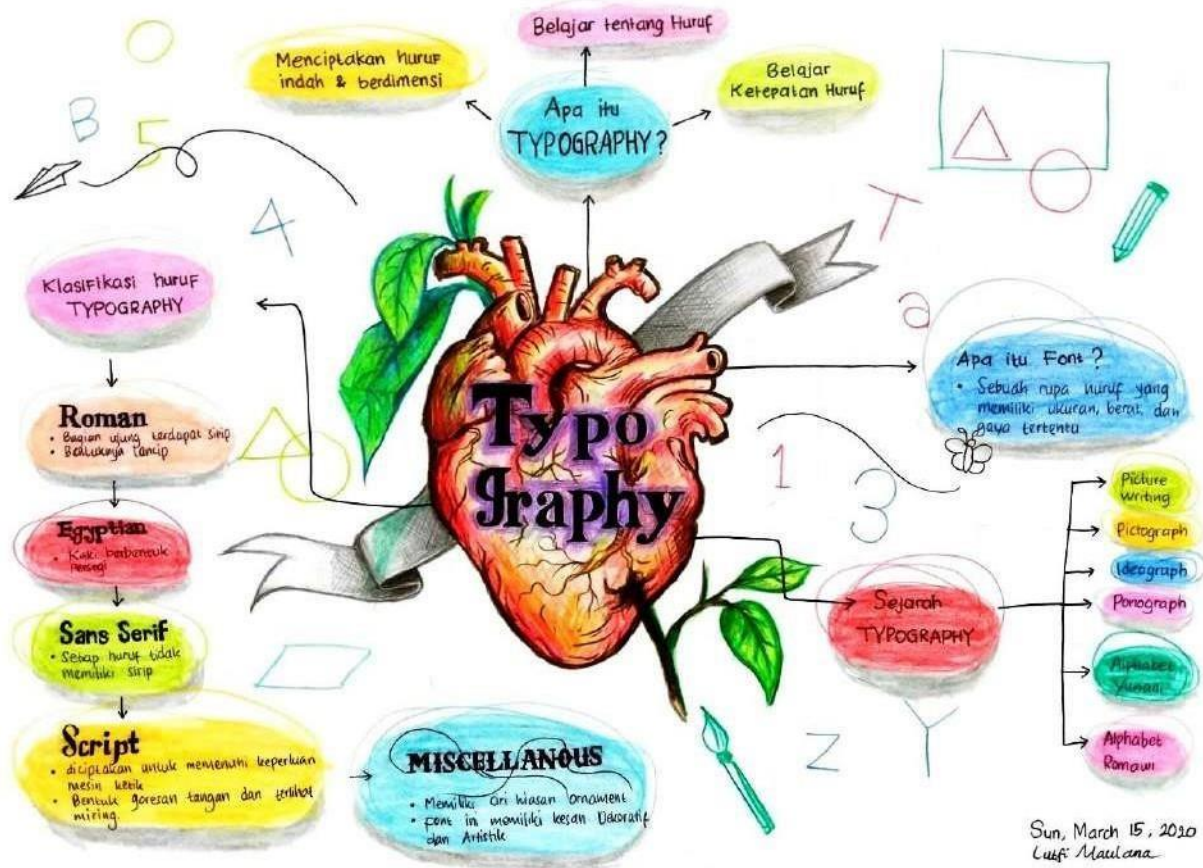 Belajar tentang Huruf
Menciptakan huruf
indah & berdimensi
Belajar
Ketepatan Huruf
Apa itu
TYPOGRAPHY?
B
5
4
T
a
Klasifikasi huruf
TYPOGRAPHY
Roman
• Bagian ujung terdapat sirip
• Bentuknya lancip
Egyptian
• Kaki berbentuk
persegi
Sans Serif
• Setiap huruf tidak
memiliki sirip
Script
• diciptakan untuk memenuhi keperluan
mesin ketik
• Bentuk goresan tangan dan terlihat
miring.
MISCELLANOUS
• Memiliki ciri hiasan ornament
• font ini memiliki kesan Dekoratif
dan Artistik
Typo
graphy
Apa itu Font?
• Sebuah rupa huruf yang
memiliki ukuran, berat, dan
gaya tertentu
1
3
Sejarah
TYPOGRAPHY
Picture
Writing
Pictograph
Ideograph
Ponograph
Alphabet
Yunani
Alphabet
Romawi
Z
Y
Sun, March 15, 2020
Lutfi Maulana